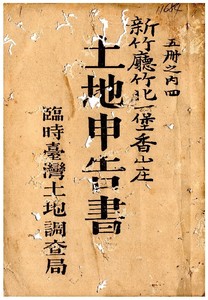 11684
五册之內四
新竹廳竹北一堡香山庄
土地申告書
臨時臺灣土地調查局